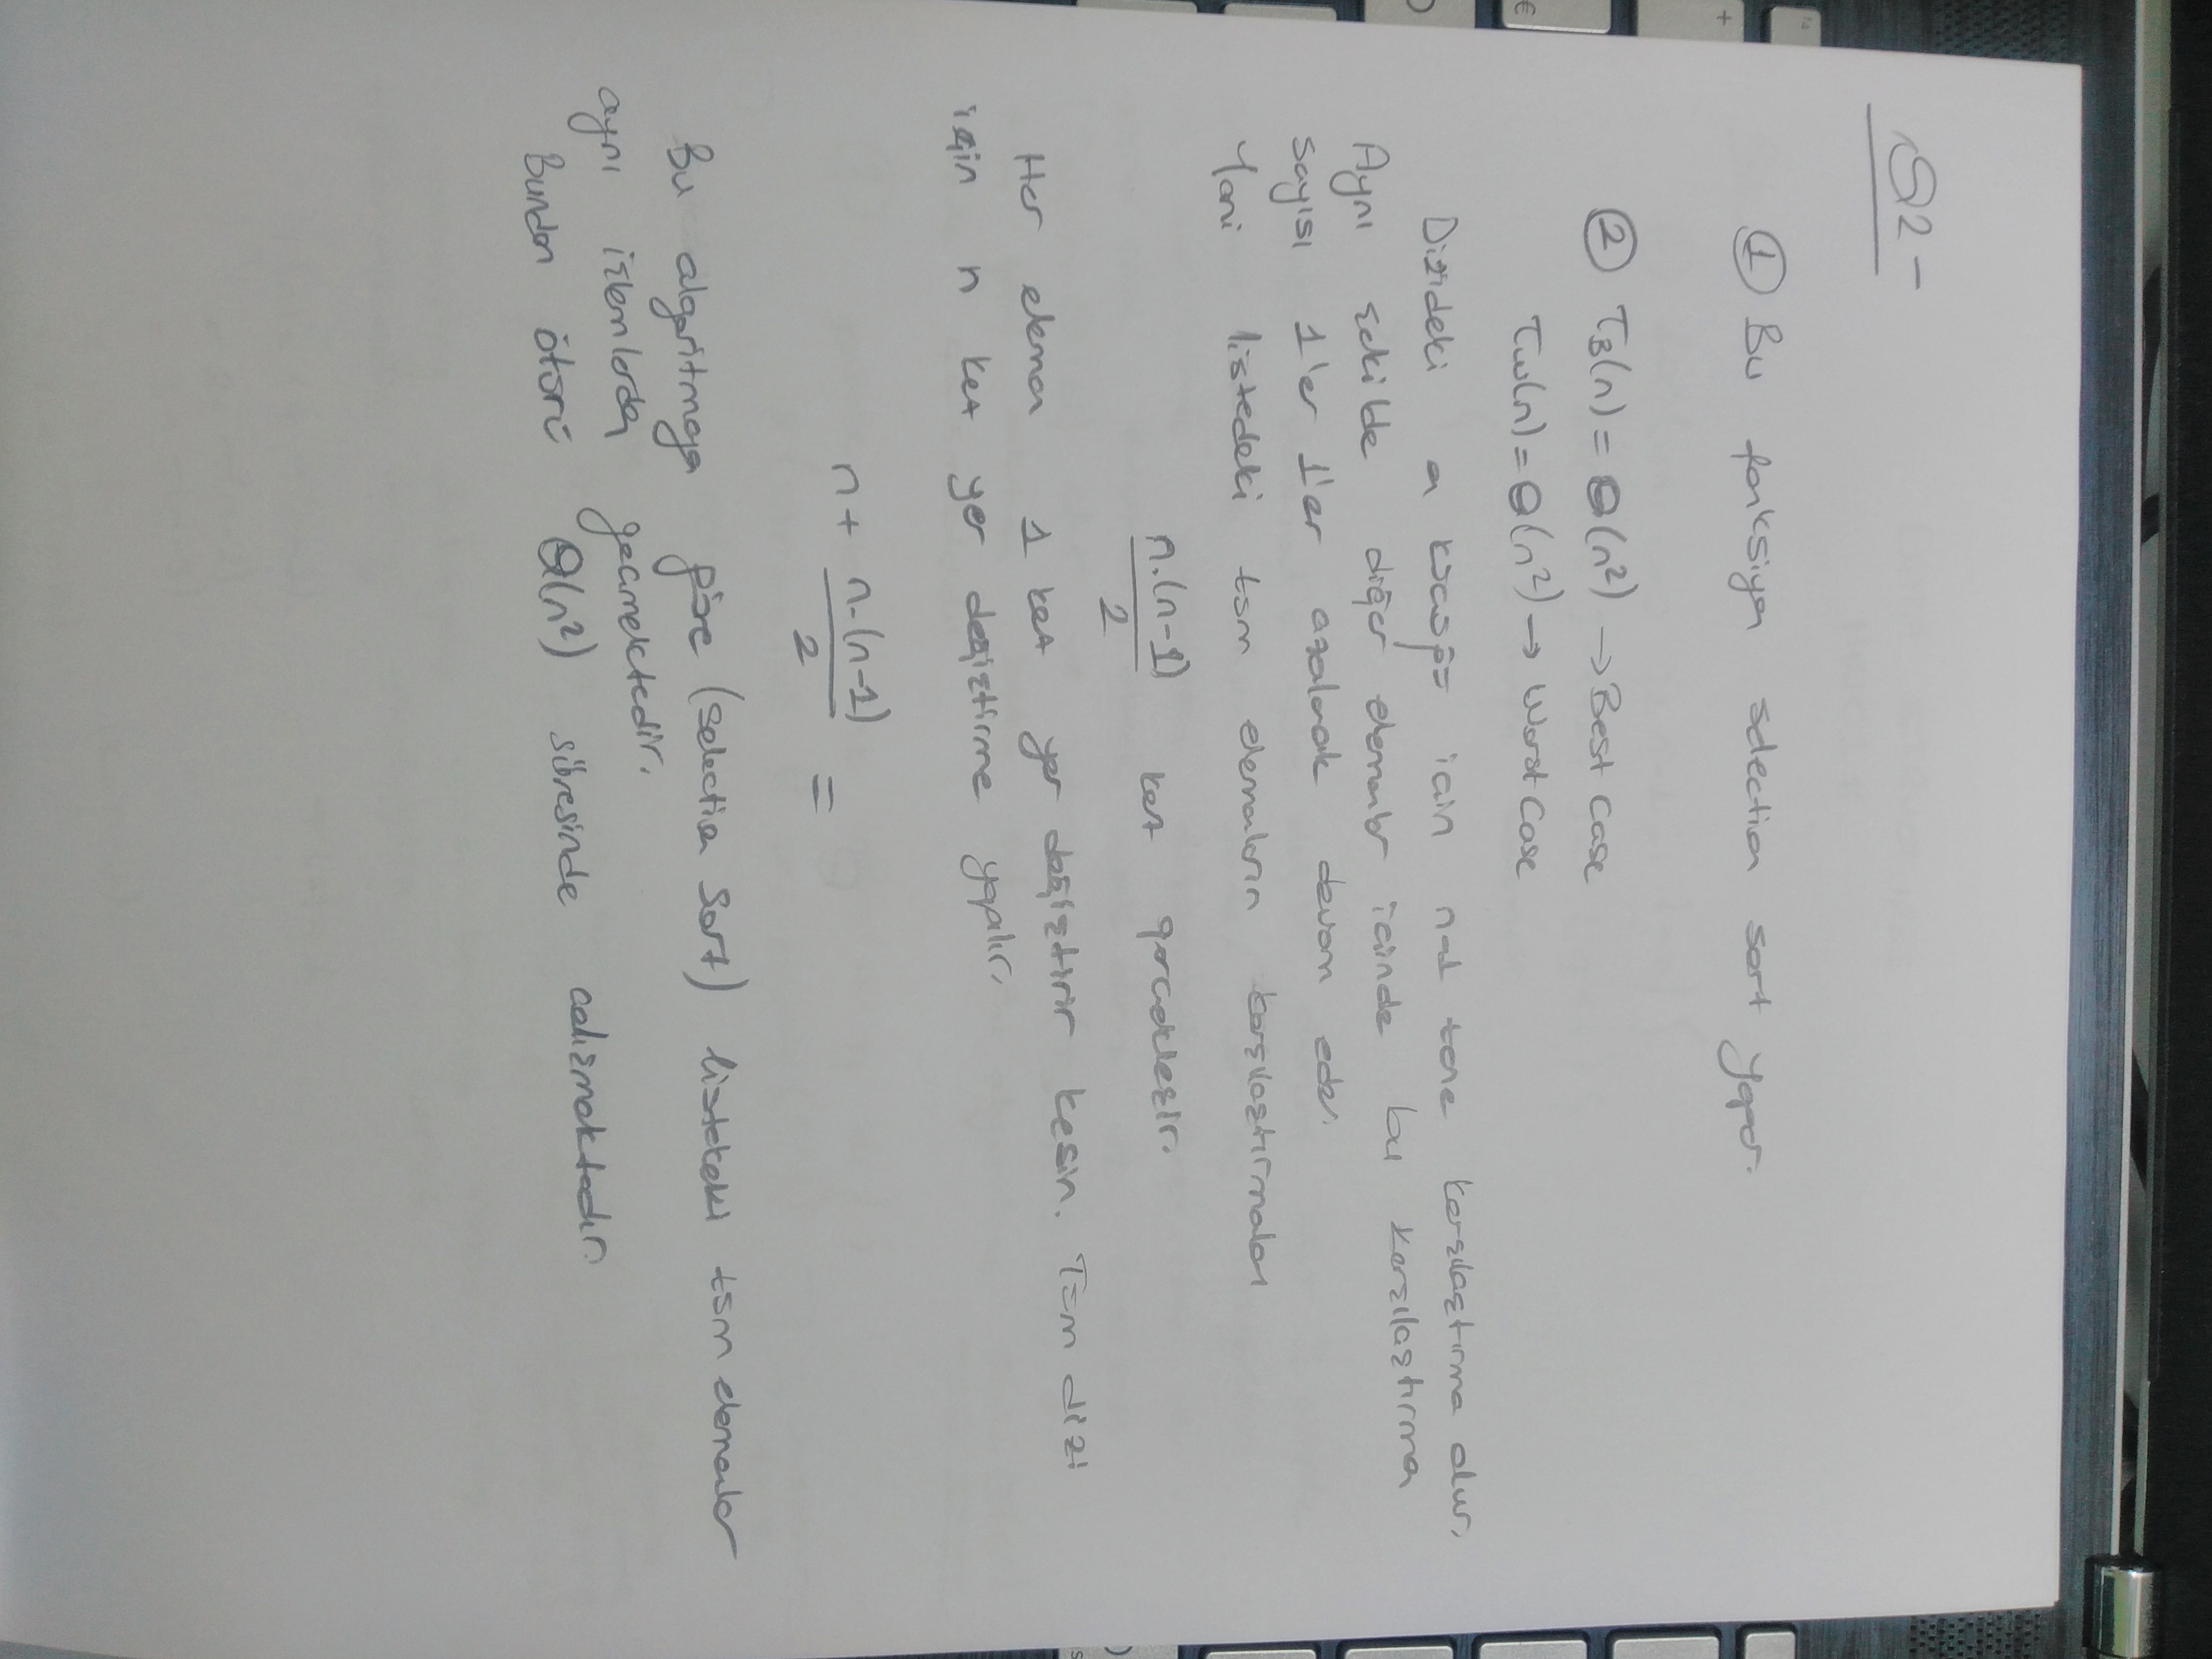 Q2-
① Bu fonksiyon selection sort yapar.
② TB(n) = Θ(n²) → Best Case
Tw(n) = Θ(n²) → Worst Case
Dizideki en küçüğü için n-1 tane karşılaştırma olur,
Aynı şekilde diğer elemanlar içinde bu karşılaştırma
sayısı 1'er 1'er azalarak devam eder.
Yani listedeki tüm elemanların karşılaştırmaları
n.(n-1)/2 kez gerçekleşir.
Her eleman 1 kez yer değiştirir kesin. Tüm dizi
için n kez yer değiştirme yapılır.
n + n.(n-1)/2 =
Bu algoritmaya göre (selection sort) listedeki tüm elemanlar
aynı işlemlerden geçmektedir.
Bundan ötürü Θ(n²) süresinde çalışmaktadır.